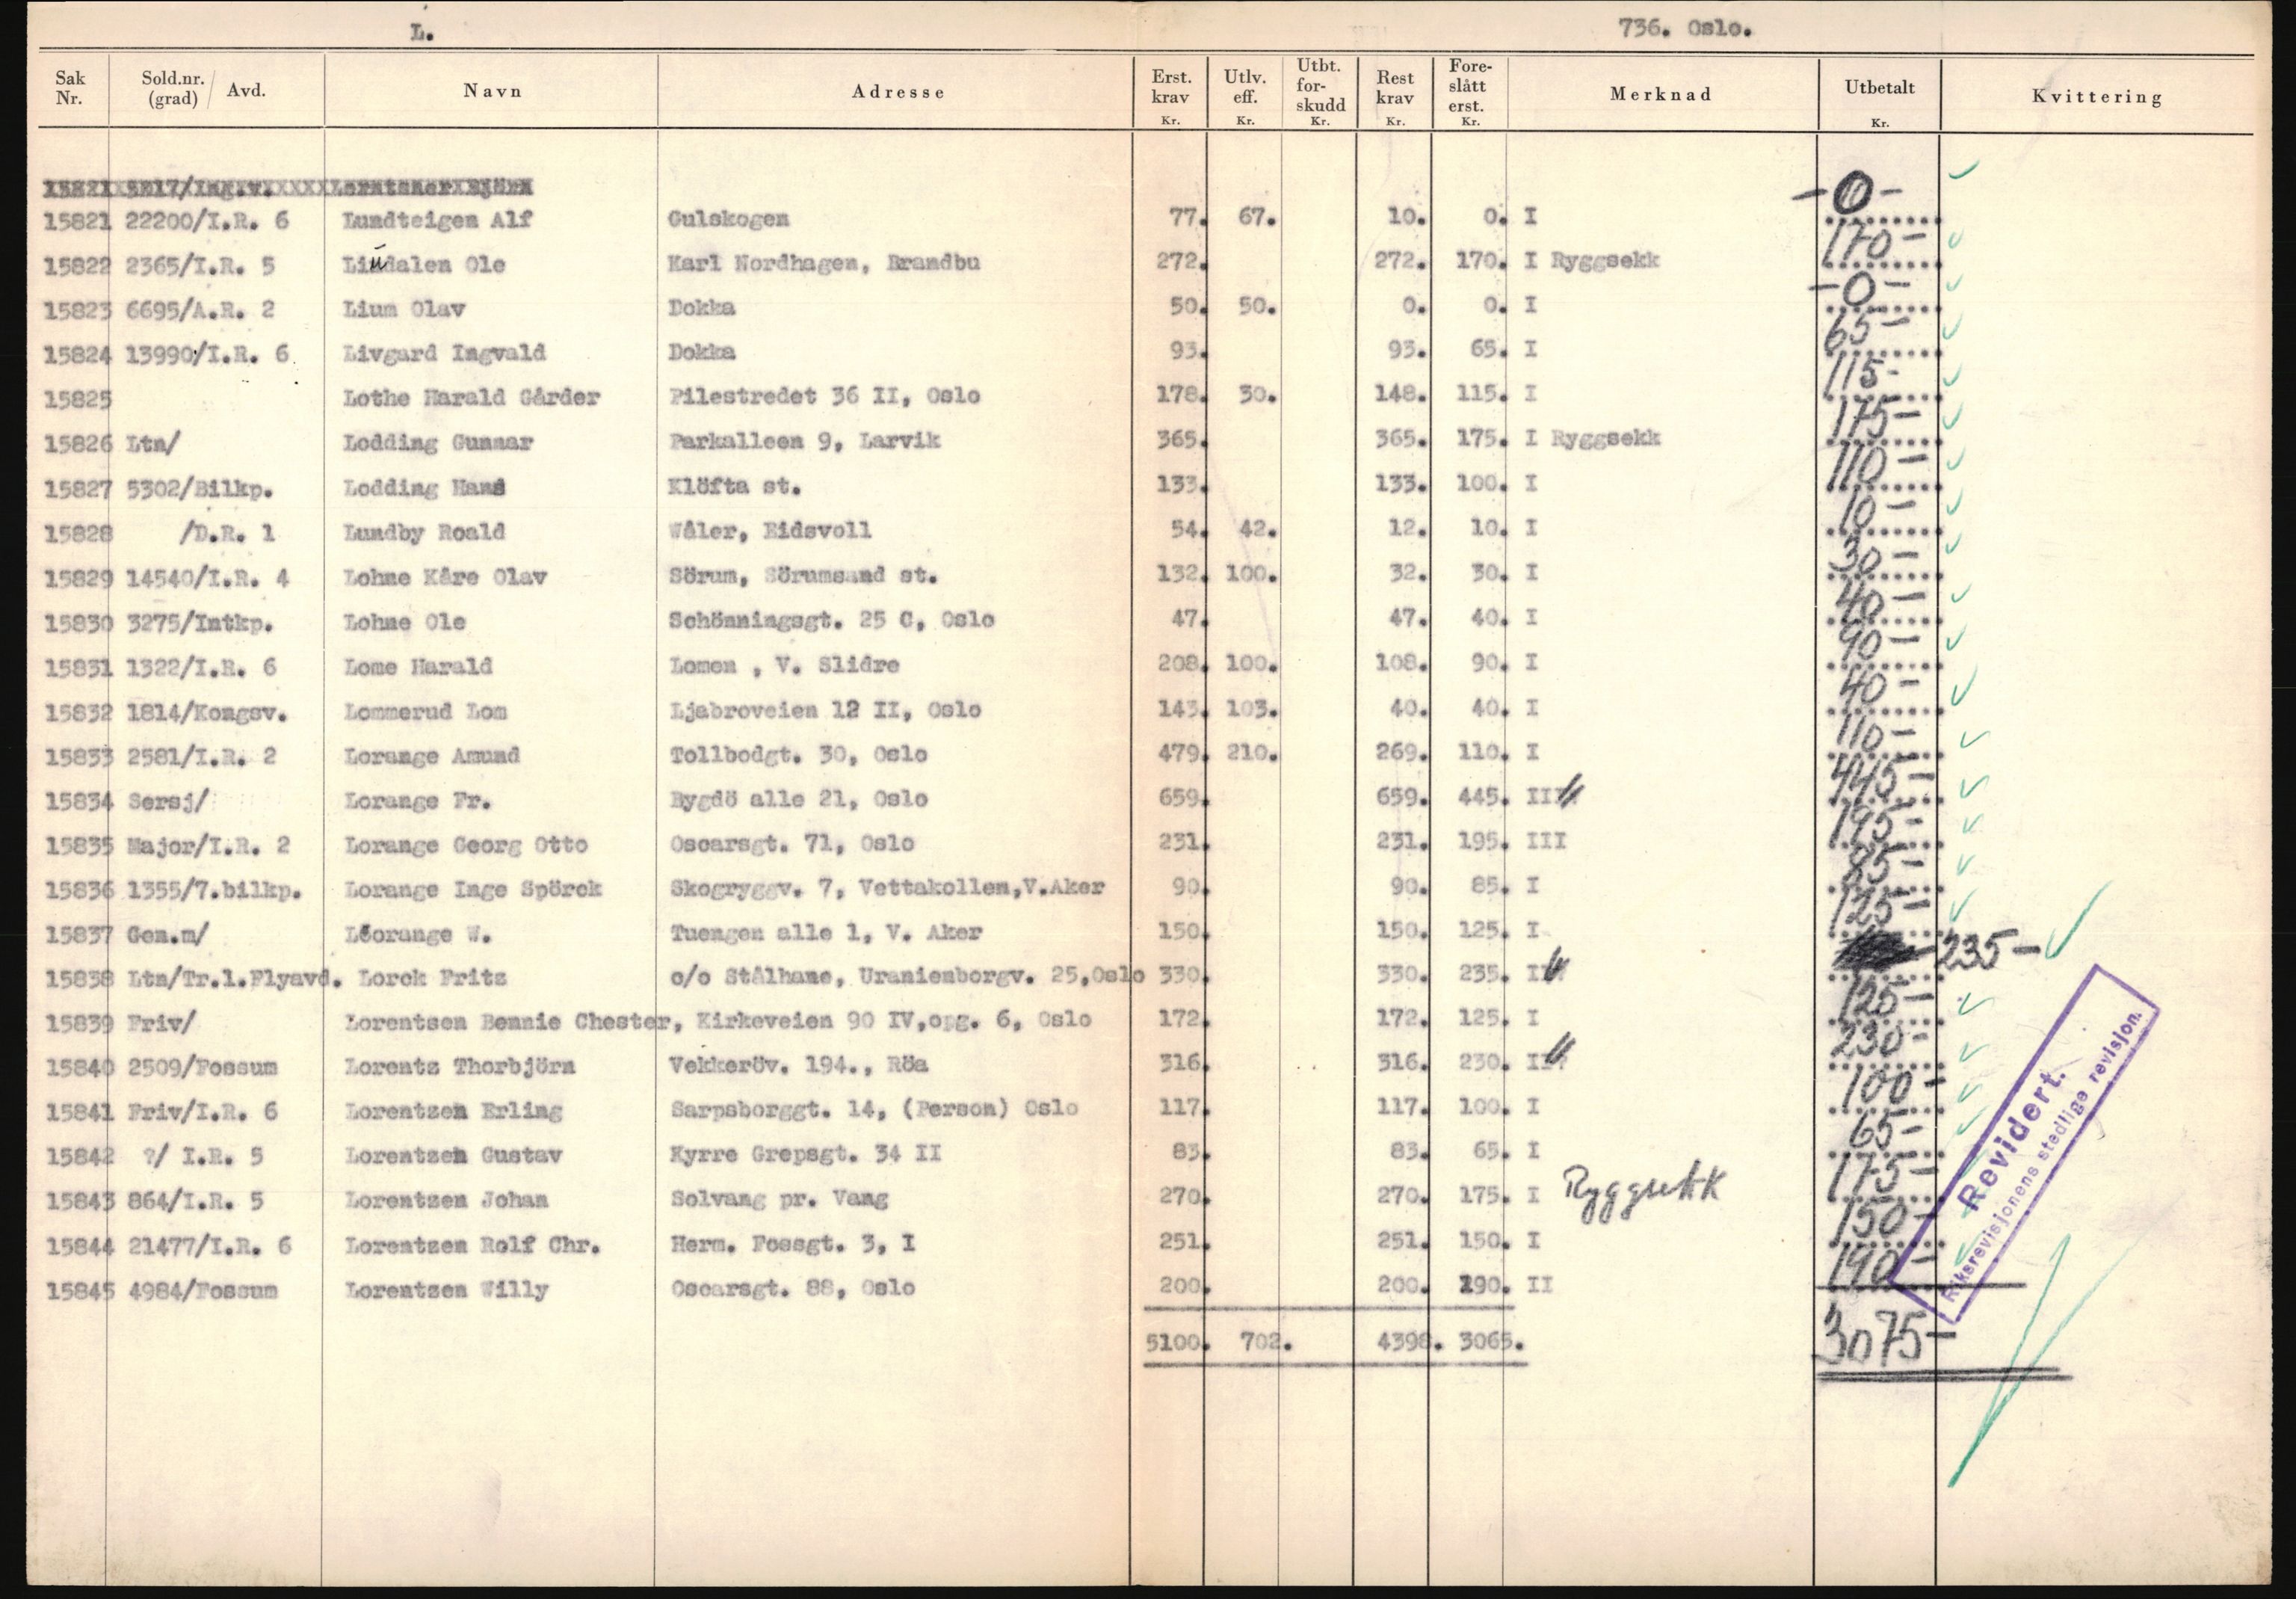 L.
736. Oslo.
Sak Nr. Sold.nr. (grad) / Avd. Navn Adresse Erst. krav Kr. Utlv. eff. Kr. Utbt. for-skudd Kr. Rest krav Kr. Fore-slått erst. Kr. Merknad Utbetalt Kr. Kvittering
15821 22200/I.R. 6 Lundteigen Alf Gulskogen 77. 67. 10. 0. I -0-
15822 2365/I.R. 5 Lindalen Ole Karl Nordhagen, Brandbu 272. 272. 170. I Ryggsekk 170-
15823 6695/A.R. 2 Lium Olav Dokka 50. 50. 0. 0. I -0-
15824 13990/I.R. 6 Livgard Ingvald Dokka 93. 93. 65. I 65-
15825 Lothe Harald Gårder Pilestredet 36 II, Oslo 178. 30. 148. 115. I 115-
15826 Ltn/ Lodding Gunnar Parkalleen 9, Larvik 365. 365. 175. I Ryggsekk 175-
15827 5302/Bilkp. Lodding Hans Klöfta st. 133. 133. 100. I 110-
15828 /D.R. 1 Lundby Roald Wåler, Eidsvoll 54. 42. 12. 10. I 10-
15829 14540/I.R. 4 Lohne Kåre Olav Sörum, Sörumsand st. 132. 100. 32. 30. I 30-
15830 3275/Intkp. Lohne Ole Schönningsgt. 25 C, Oslo 47. 47. 40. I 40-
15831 1322/I.R. 6 Lome Harald Lomen , V. Slidre 208. 100. 108. 90. I 90-
15832 1814/Kongsv. Lommerud Lom Ljabroveien 12 II, Oslo 143. 103. 40. 40. I 40-
15833 2581/I.R. 2 Lorange Amund Tollbodgt. 30, Oslo 479. 210. 269. 110. I 110-
15834 Sersj/ Lorange Fr. Bygdö alle 21, Oslo 659. 659. 445. II 445-
15835 Major/I.R. 2 Lorange Georg Otto Oscarsgt. 71, Oslo 231. 231. 195. III 195-
15836 1355/7.bilkp. Lorange Inge Spörck Skogryggv. 7, Vettakollen,V.Aker 90. 90. 85. I 85-
15837 Gen.m/ Lorange W. Tuengen alle 1, V. Aker 150. 150. 125. I 125-
15838 Ltn/Tr.l.Flyavd. Lorck Fritz c/o Stålhane, Uranienborgv. 25,Oslo 330. 330. 235. I 235-
15839 Friv/ Lorentsen Bennie Chester, Kirkeveien 90 IV,opg. 6, Oslo 172. 172. 125. I 125-
15840 2509/Fossum Lorentz Thorbjörn Vekkeröv. 194., Röa 316. 316. 230. I 230-
15841 Friv/I.R. 6 Lorentzen Erling Sarpsborggt. 14, (Person) Oslo 117. 117. 100. I 100-
15842 ?/ I.R. 5 Lorentzen Gustav Kyrre Grepsgt. 34 II 83. 83. 65. I 65-
15843 864/I.R. 5 Lorentzen Johan Solvang pr. Vang 270. 270. 175. I Ryggsekk 175-
15844 21477/I.R. 6 Lorentzen Rolf Chr. Herm. Fossgt. 3, I 251. 251. 150. I 150-
15845 4984/Fossum Lorentzen Willy Oscarsgt. 88, Oslo 200. 200. 190. II 190-
5100. 702. 4398. 3065. 3075-
Revidert.
Riksrevisjonens stedlige revisjon.